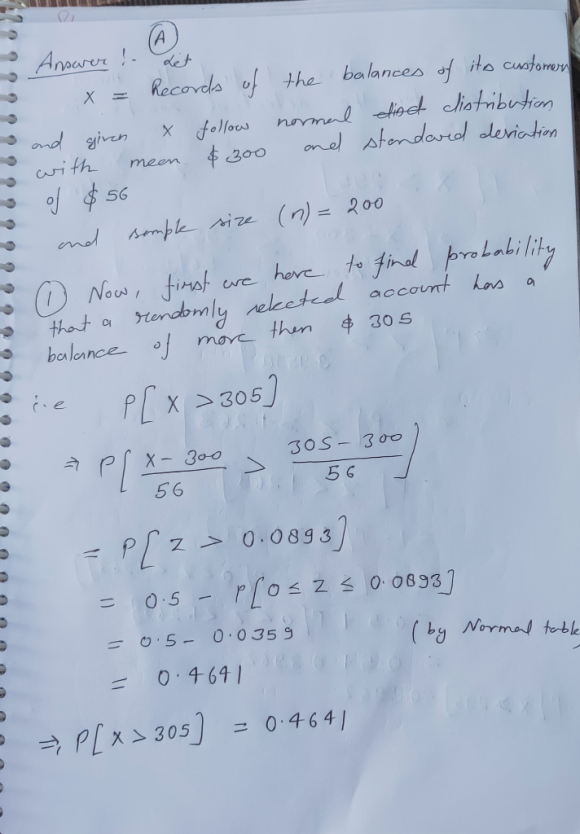 (A)
Answer !. Let
X = Records of the balances of its customers
and given X follow normal distribution
with mean $ 300 and standard deviation
of $ 56
and sample size (n) = 200
(1) Now, first we have to find probability
that a randomly selected account has a
balance of more then $ 305
i.e P[ X > 305]
⇒ P[ (X - 300)/56 > (305 - 300)/56 ]
= P[ Z > 0.0893]
= 0.5 - P[0 ≤ Z ≤ 0.0893]
= 0.5 - 0.0359 (by Normal table
= 0.4641
⇒ P[X > 305] = 0.4641